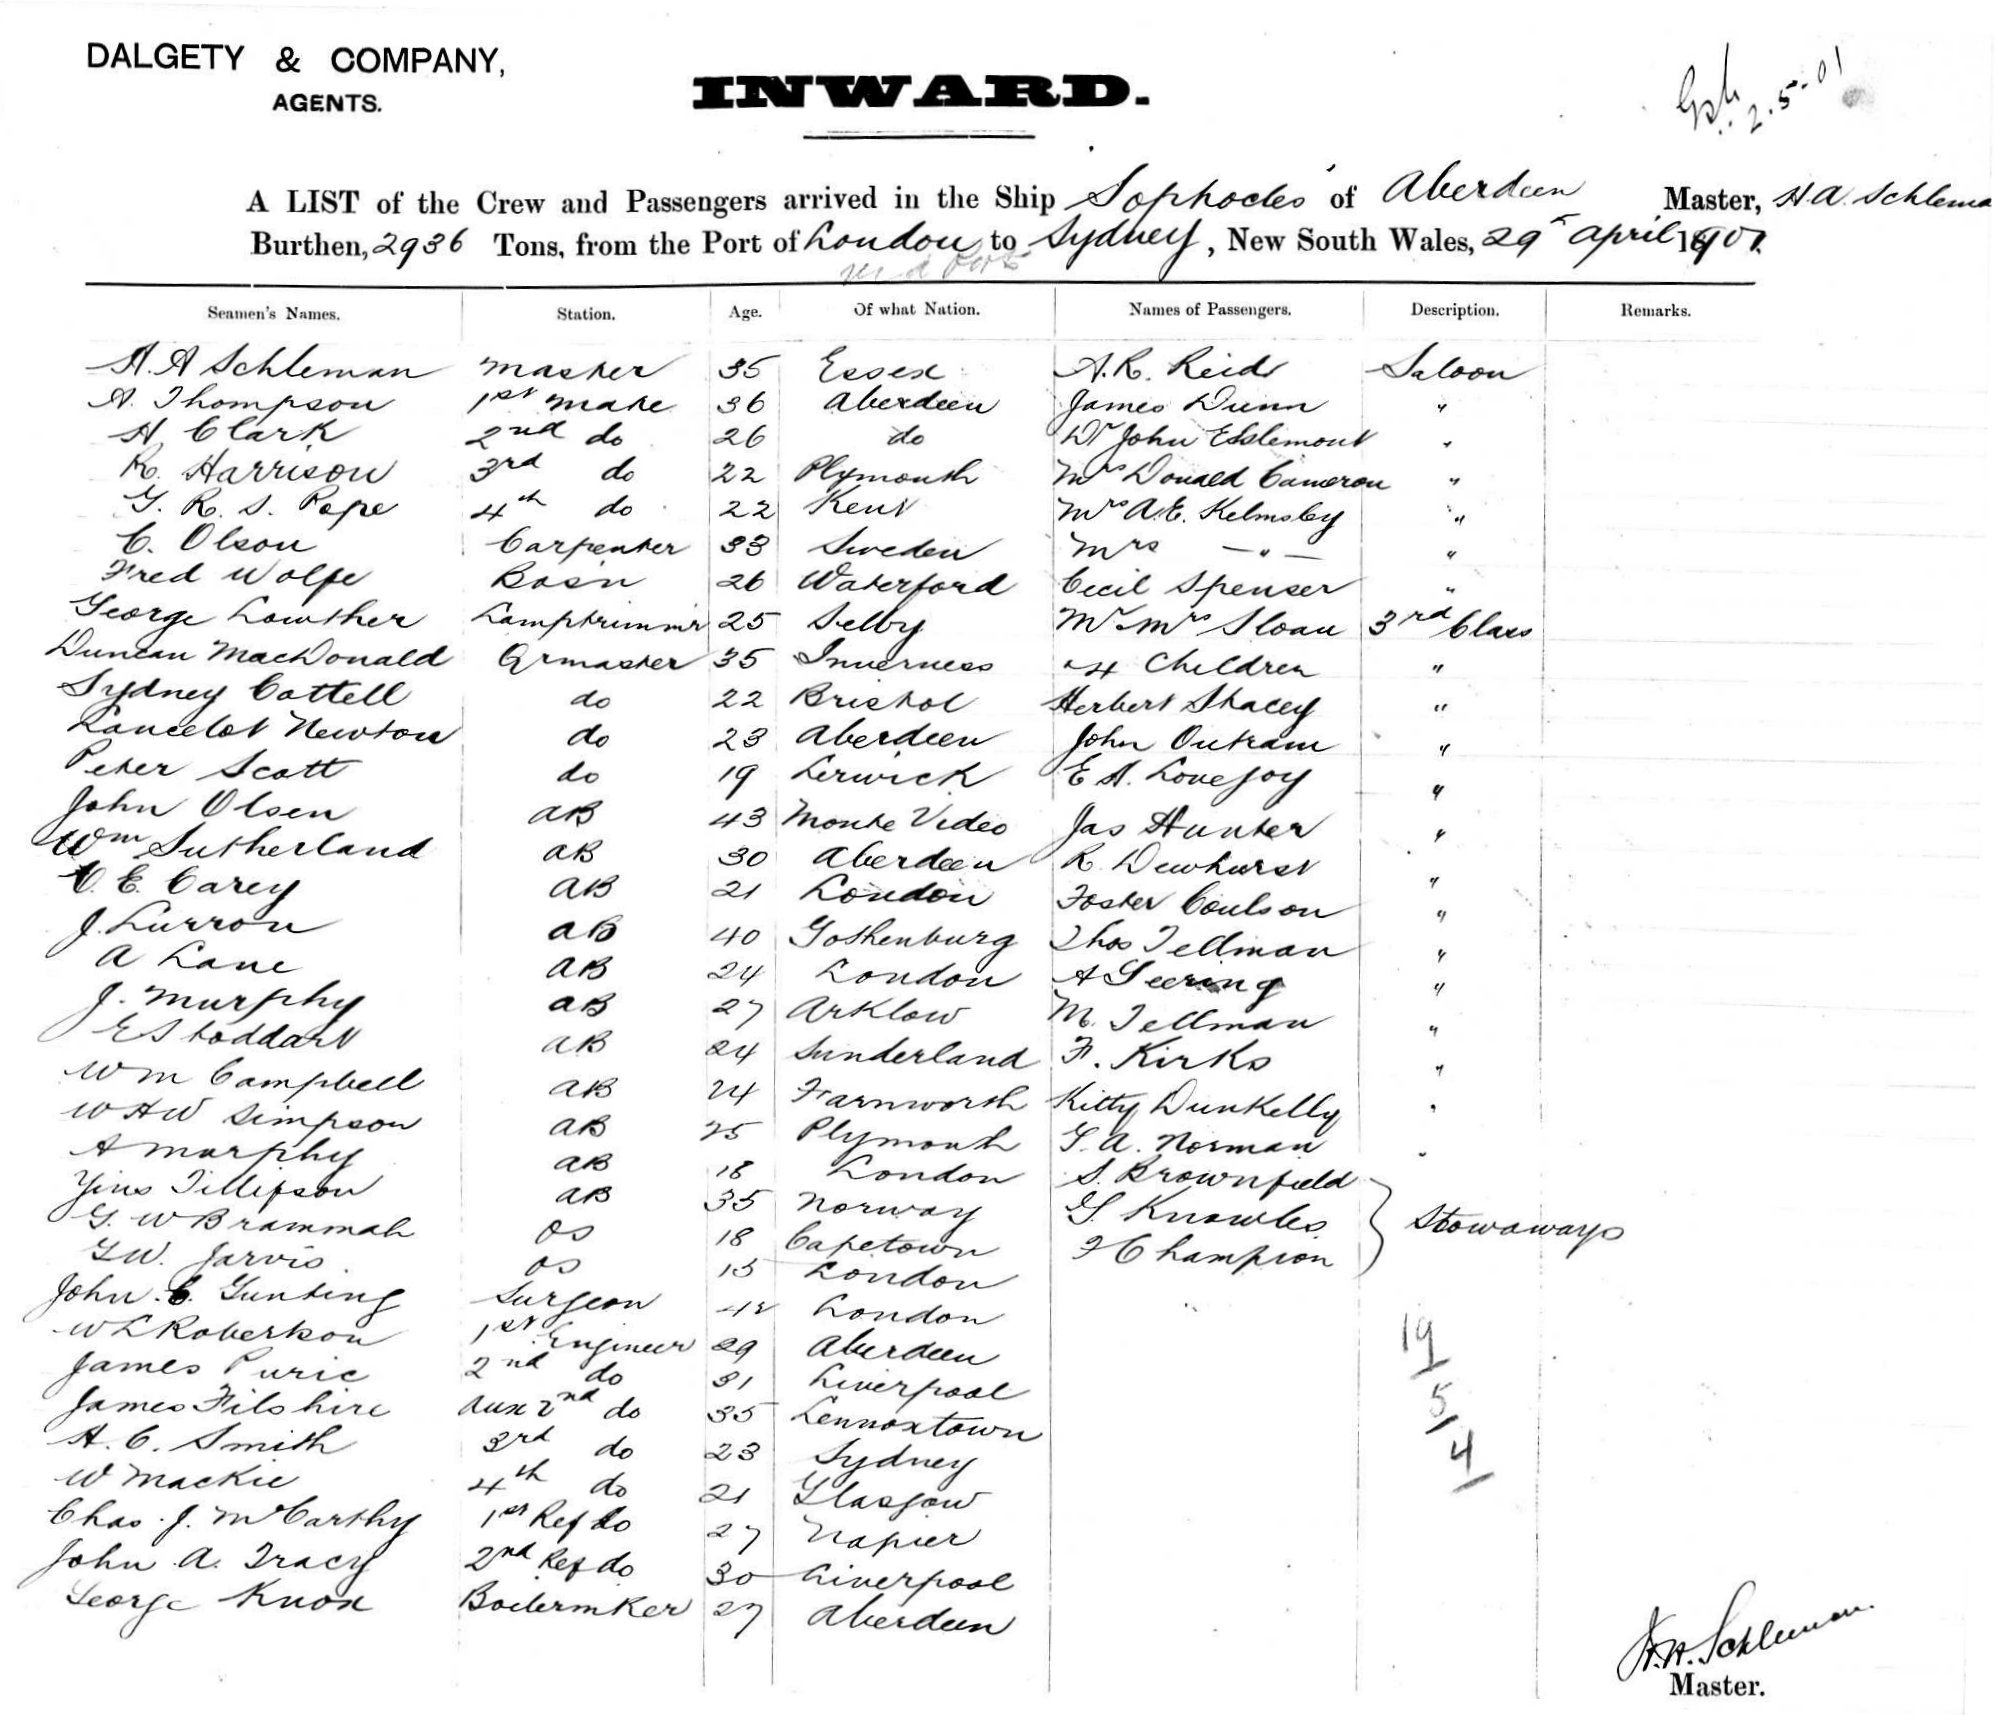 DALGETY & COMPANY,
AGENTS.
INWARD.
2.5-01
A LIST of the Crew and Passengers arrived in the Ship Sophocles of Aberdeen Master, H.A. Schlema
Burthen, 2936 Tons, from the Port of London to Sydney, New South Wales, 29th April 1901.
Seamen's Names. Station. Age. Of what Nation. Names of Passengers. Description. Remarks.
H. A Schleman Master 35 Essex A. R. Reid Saloon
A. Thompson 1st Mate 36 Aberdeen James Dunn "
H. Clark 2nd do 26 do Dr John Esslemont "
R. Harrison 3rd do 22 Plymouth Mrs Donald Cameron "
G. R. S. Pope 4th do 22 Kent Mr A.E. Kelmsley "
C. Olson Carpenter 33 Sweden Mrs — " — "
Fred Wolfe Bosn 26 Waterford Cecil Spenser "
George Lowther Lamptrimmr 25 Selby Mr & Mrs Sloan 3rd Class
Duncan MacDonald Qrmaster 35 Inverness & 4 Children "
Sydney Cottell do 22 Bristol Herbert Stacey "
Lancelot Newton do 23 Aberdeen John Outram "
Peter Scott do 19 Lerwick E A. Lovejoy "
John Olsen AB 43 Monte Video Jas Hunter "
Wm Sutherland AB 30 Aberdeen R. Dewhurst "
E. Carey AB 21 London Foster Coulson "
J. Lurron AB 40 Gothenburg Thos Tellman "
A Lane AB 24 London A Geering "
J. Murphy AB 27 Arklow M. Tellman "
E Stoddart AB 24 Sunderland F. Kirks "
Wm Campbell AB 24 Farnworth Kitty Dunkelly "
W H W Simpson AB 25 Plymouth G. A. Norman "
A Murphy AB 18 London S. Brownfield
Tillifson AB 35 Norway G. Knowles Stowaways
G. W Brammah OS 18 Capetown F Champion
G W. Jarvis OS 15 London
John C. Gunting Surgeon 42 London
W L Robertson 1st Engineer 29 Aberdeen 19
James Puric 2nd do 31 Liverpool
James Filshire Aux 2nd do 35 Lennoxtown 5
A. C. Smith 3rd do 23 Sydney 4
W Mackie 4th do 21 Glasgow
Chas. J. McCarthy 1st Ref do 27 Napier
John A. Tracy 2nd Ref do 30 Liverpool
George Knox Boilermker 27 Aberdeen
H.A. Schleman.
Master.